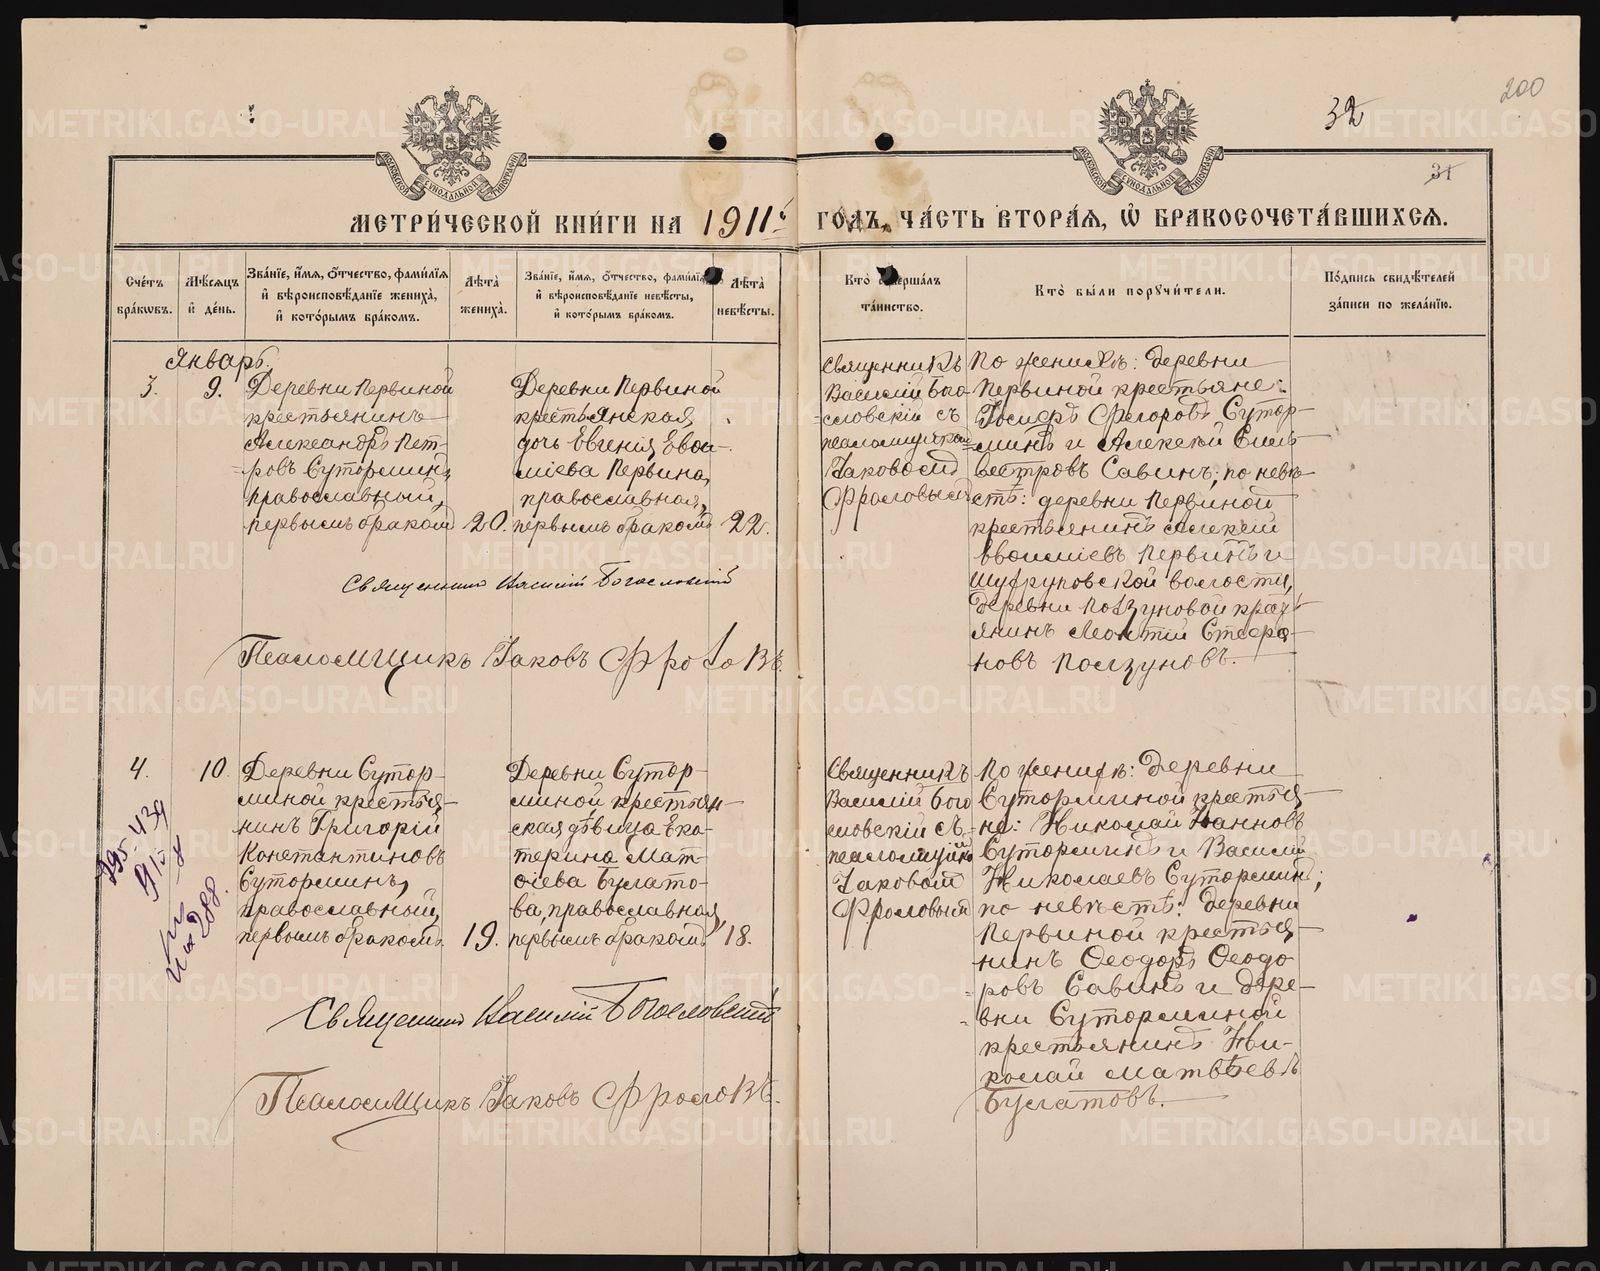 200
32
31
МОСКОВСКОЙ СѴНОДАЛЬНОЙ ТИПОГРАФІИ
МОСКОВСКОЙ СѴНОДАЛЬНОЙ ТИПОГРАФІИ
МЕТРИ́ЧЕСКОЙ КНИ́ГИ НА 1911й ГО́ДЪ, ЧА́СТЬ ВТОРА́Я, Ѽ БРАКОСОЧЕТА́ВШИХСЯ.
Сче́тъ бра́кѡвъ.
Мѣ́сяцъ и҆ де́нь.
Зва́нїе, и҆́мя, ѻ҆́тчество, фами́лїя и҆ вѣроисповѣ́данїе жениха̀, и҆ кото́рымъ бра́комъ.
Лѣ́та жениха̀.
Зва́нїе, и҆́мя, ѻ҆́тчество, фами́лїя и҆ вѣроисповѣ́данїе невѣ́сты, и҆ кото́рымъ бра́комъ.
Лѣ́та невѣ́сты.
Кто̀ соверша́лъ та́инство.
Кто̀ бы́ли порꙋчи́тели.
По́дпись свидѣ́телей за́писи по жела́нїю.
Январь.
3.
9.
Деревни Первиной
крестьянинъ
Александръ Пет-
=ровъ Сутор­минъ,
православный,
первымъ бракомъ
20.
Деревни Первиной
крестьянская
дочь Евгенія Евѳи-
міева Первина,
православная,
первымъ бракомъ
22.
Священникъ
Василій Бого
=словскій съ
псаломщиком
Іаковомъ
Фроловымъ
По женихѣ: деревни
Первиной крестьяне:
Іосифъ Ѳедоровъ Сутор-
минъ и Алексѣй Силь-
вестровъ Савинъ; по невѣ-
стѣ: деревни Первиной
крестьянинъ Алексѣй
Евѳиміевъ Первинъ и
деревни Ползуновой крест-
янинъ Леонтій Стефа-
новъ Ползуновъ.
Священникъ Василій Богословскій
Псаломщикъ Іаковъ Фроловъ.
4.
10.
Деревни Сутор-
миной крестья-
нинъ Григорій
Константиновъ
Сутор­минъ,
православный,
первымъ бракомъ
19.
Деревни Сутор-
миной крестьян-
ская дѣвица Ека-
терина Мат-
ѳіева Булато-
ва, православная,
первымъ бракомъ
18.
Священникъ
Василій Бого
словскій съ
псаломщико
Іаковомъ
Фроловымъ
По женихѣ: деревни
Суторминой крестья-
не: Николай Іоанновъ
Суторминъ и Василій
Николаевъ Суторминъ;
по невѣстѣ: деревни
Первиной крестья-
нинъ Ѳеодоръ Ѳеодо
=ровъ Савинъ и дере-
=вни Суторминой
крестьянинъ Ни-
колай Матвѣевъ
Булатовъ.
Священникъ Василій Богословскій
Псаломщикъ Іаковъ Фроловъ.
METRIKI.GASO-URAL.RU